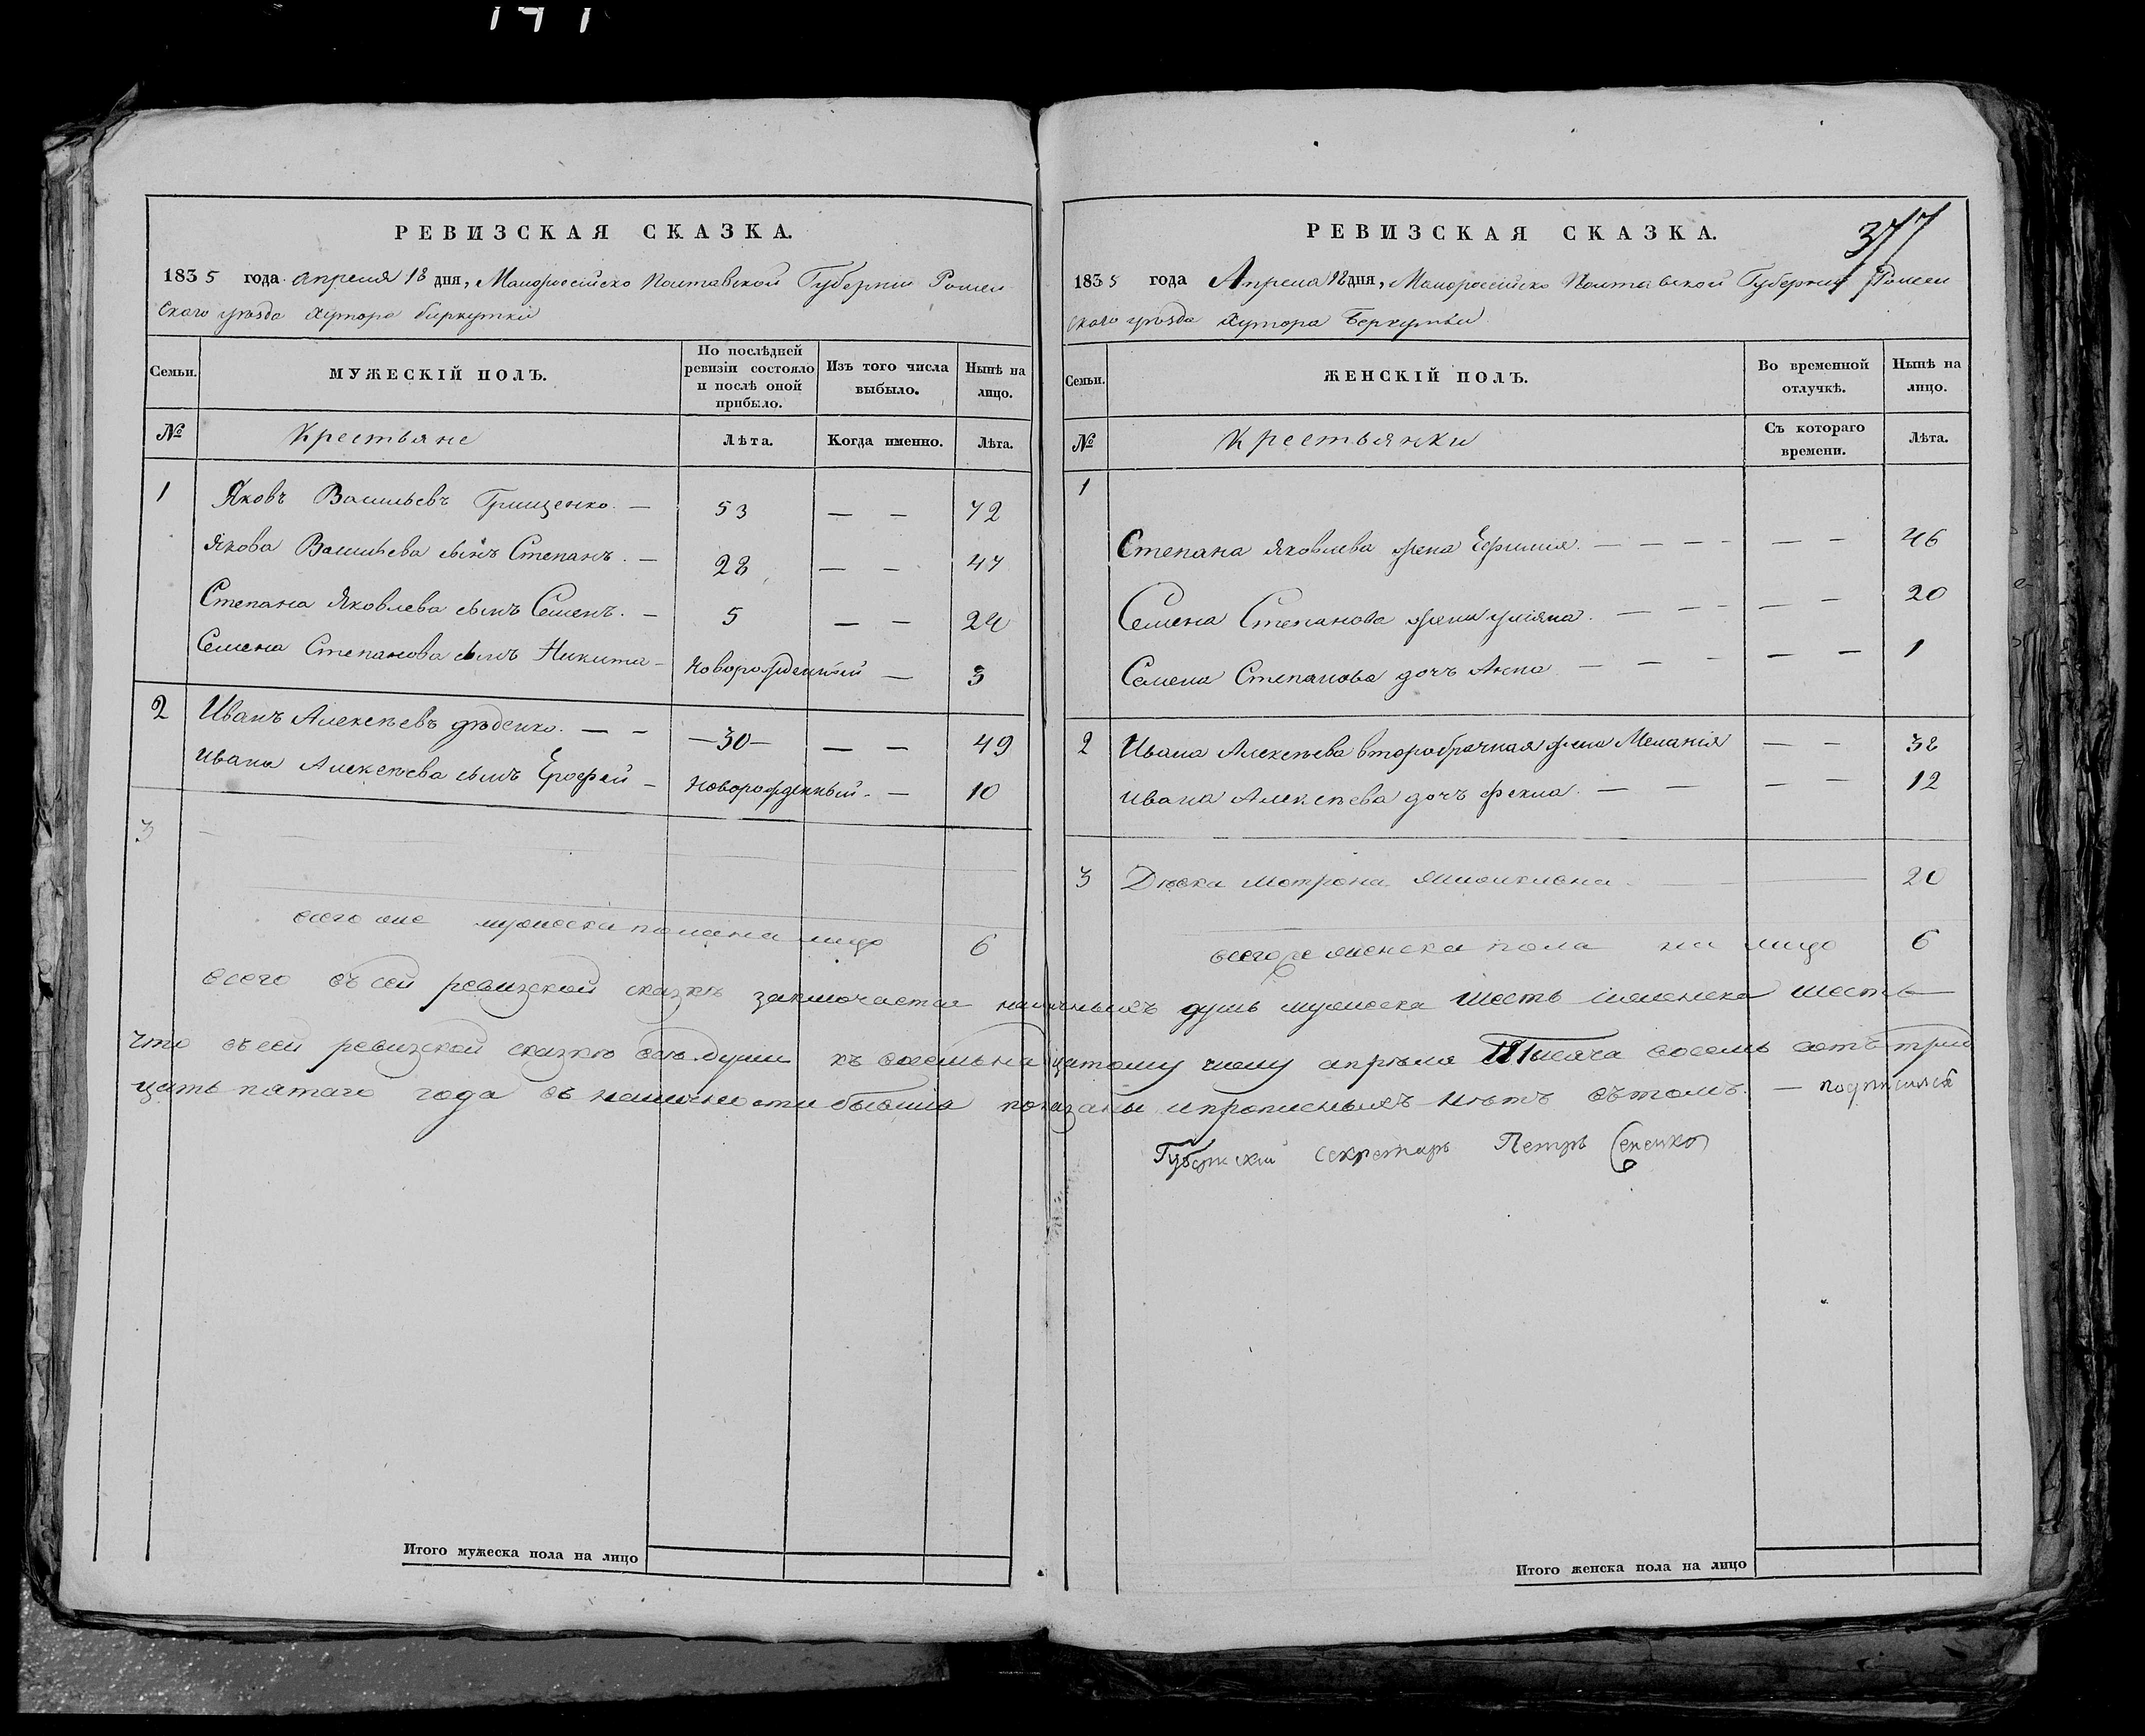 РЕВИЗСКАЯ СКАЗКА.
1835 года Апреля 18 дня, Малороссійско Полтавской Губерніи Ромен
скаго уѣзда Хутора Биркутки
Семьи. МУЖЕСКІЙ ПОЛЪ. По послѣдней ревизіи состояло и послѣ оной прибыло. Изъ того числа выбыло. Нынѣ на лицо.
№ Крестьяне Лѣта. Когда именно. Лѣта.
1 Яковъ Васильевъ Грищенко. — 53 — — 72
Якова Васильева сынъ Степанъ. — 28 — — 47
Степана Яковлева сынъ Семенъ. — 5 — — 24
Семена Степанова сынъ Никита — новорожденный — 3
2 Иванъ Алексѣевъ дѣденко. — — —30— — — 49
Ивана Алексѣева сынъ Ерофей — новорожденный. — 10
3
всего мужеска пола на лицо 6
РЕВИЗСКАЯ СКАЗКА.
377
1835 года Апреля 18 дня, Малороссійско Полтавской Губерніи Ромен
скаго уѣзда Хутора Беркутки
Семьи. ЖЕНСКІЙ ПОЛЪ. Во временной отлучкѣ. Нынѣ на лицо.
№ Крестьянки Съ котораго времени. Лѣта.
1
Степана Яковлева жена Ефимия. — — — — — — 46
Семена Степанова жена улiяна. — — — — — 20
Семена Степанова дочь Анна — — — — — 1
2 Ивана Алексѣева второбрачная жена Меланія — — 38
Ивана Алексѣева дочь Фекла. — — — — 12
3 Дѣвка Мотрона 20
всего женска пола на лицо 6
всего въ сей ревизской сказкѣ заключается наличныхъ душъ мужеска шесть иженска шесть
что въ сей ревизской сказкѣ всѣ души къ восемьнацатому числу апрѣля тисяча восемь сотъ трид
цать пятаго года въ наличности бывшія показаны ипрописныхъ нѣтъ вътомъ. — подписался
Губернскій секретаръ Петръ
Итого мужеска пола на лицо
Итого женска пола на лицо